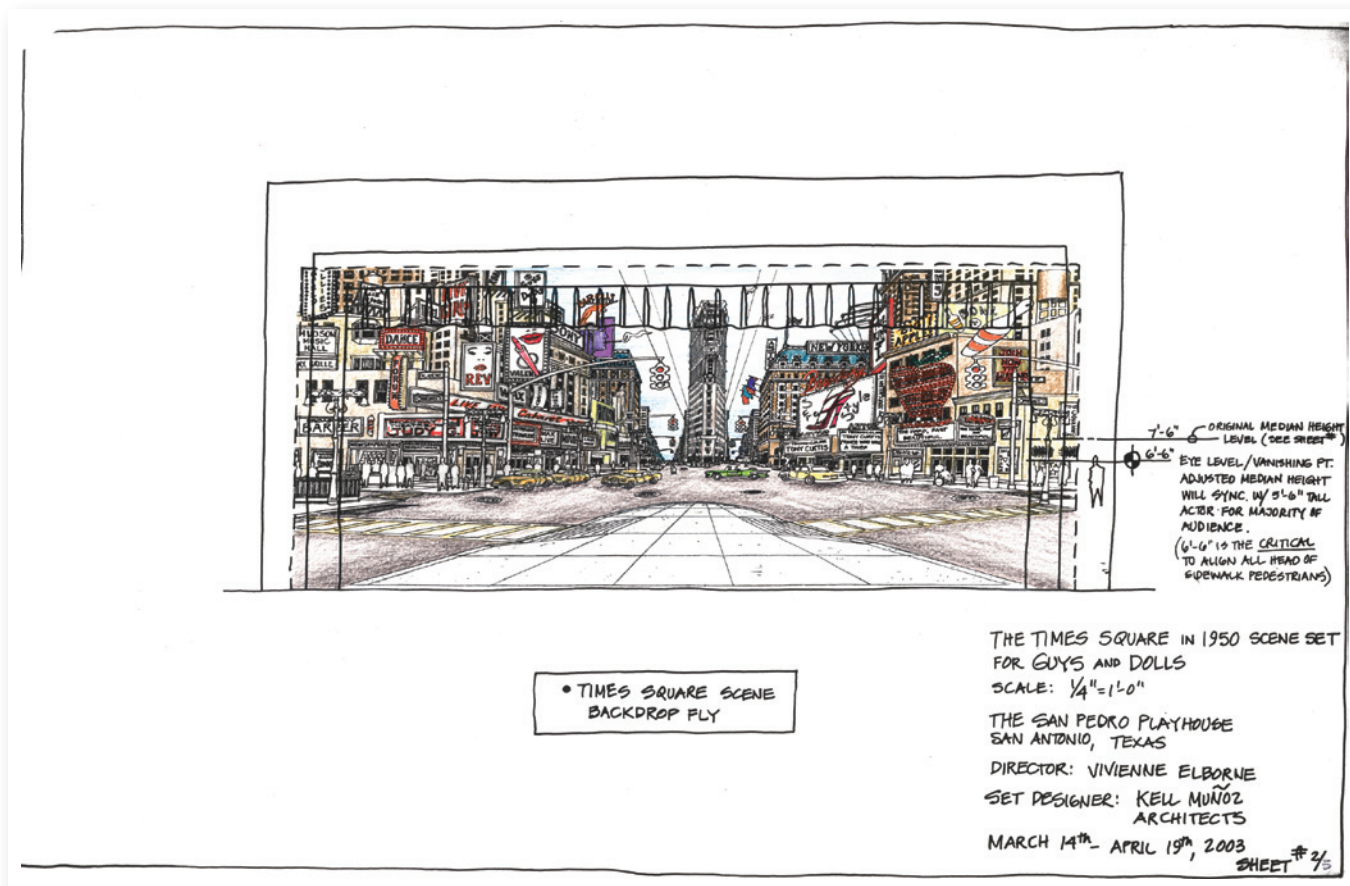 HUDSON
MUSIC
HALL
DANCE
REV
BARBER
LIVE
NEW YORKER
Style
TONY CURTIS
7'-6"
ORIGINAL MEDIAN HEIGHT
LEVEL (SEE SHEET #)
6'-6"
EYE LEVEL/VANISHING PT.
ADJUSTED MEDIAN HEIGHT
WILL SYNC. W/ 5'-6" TALL
ACTOR FOR MAJORITY OF
AUDIENCE.
(6'-6" IS THE CRITICAL
TO ALIGN ALL HEAD OF
SIDEWALK PEDESTRIANS)
• TIMES SQUARE SCENE
BACKDROP FLY
THE TIMES SQUARE IN 1950 SCENE SET
FOR GUYS AND DOLLS
SCALE: 1/4"=1'-0"
THE SAN PEDRO PLAYHOUSE
SAN ANTONIO, TEXAS
DIRECTOR: VIVIENNE ELBORNE
SET DESIGNER: KELL MUÑOZ
ARCHITECTS
MARCH 14th - APRIL 19th, 2003
SHEET # 2/5